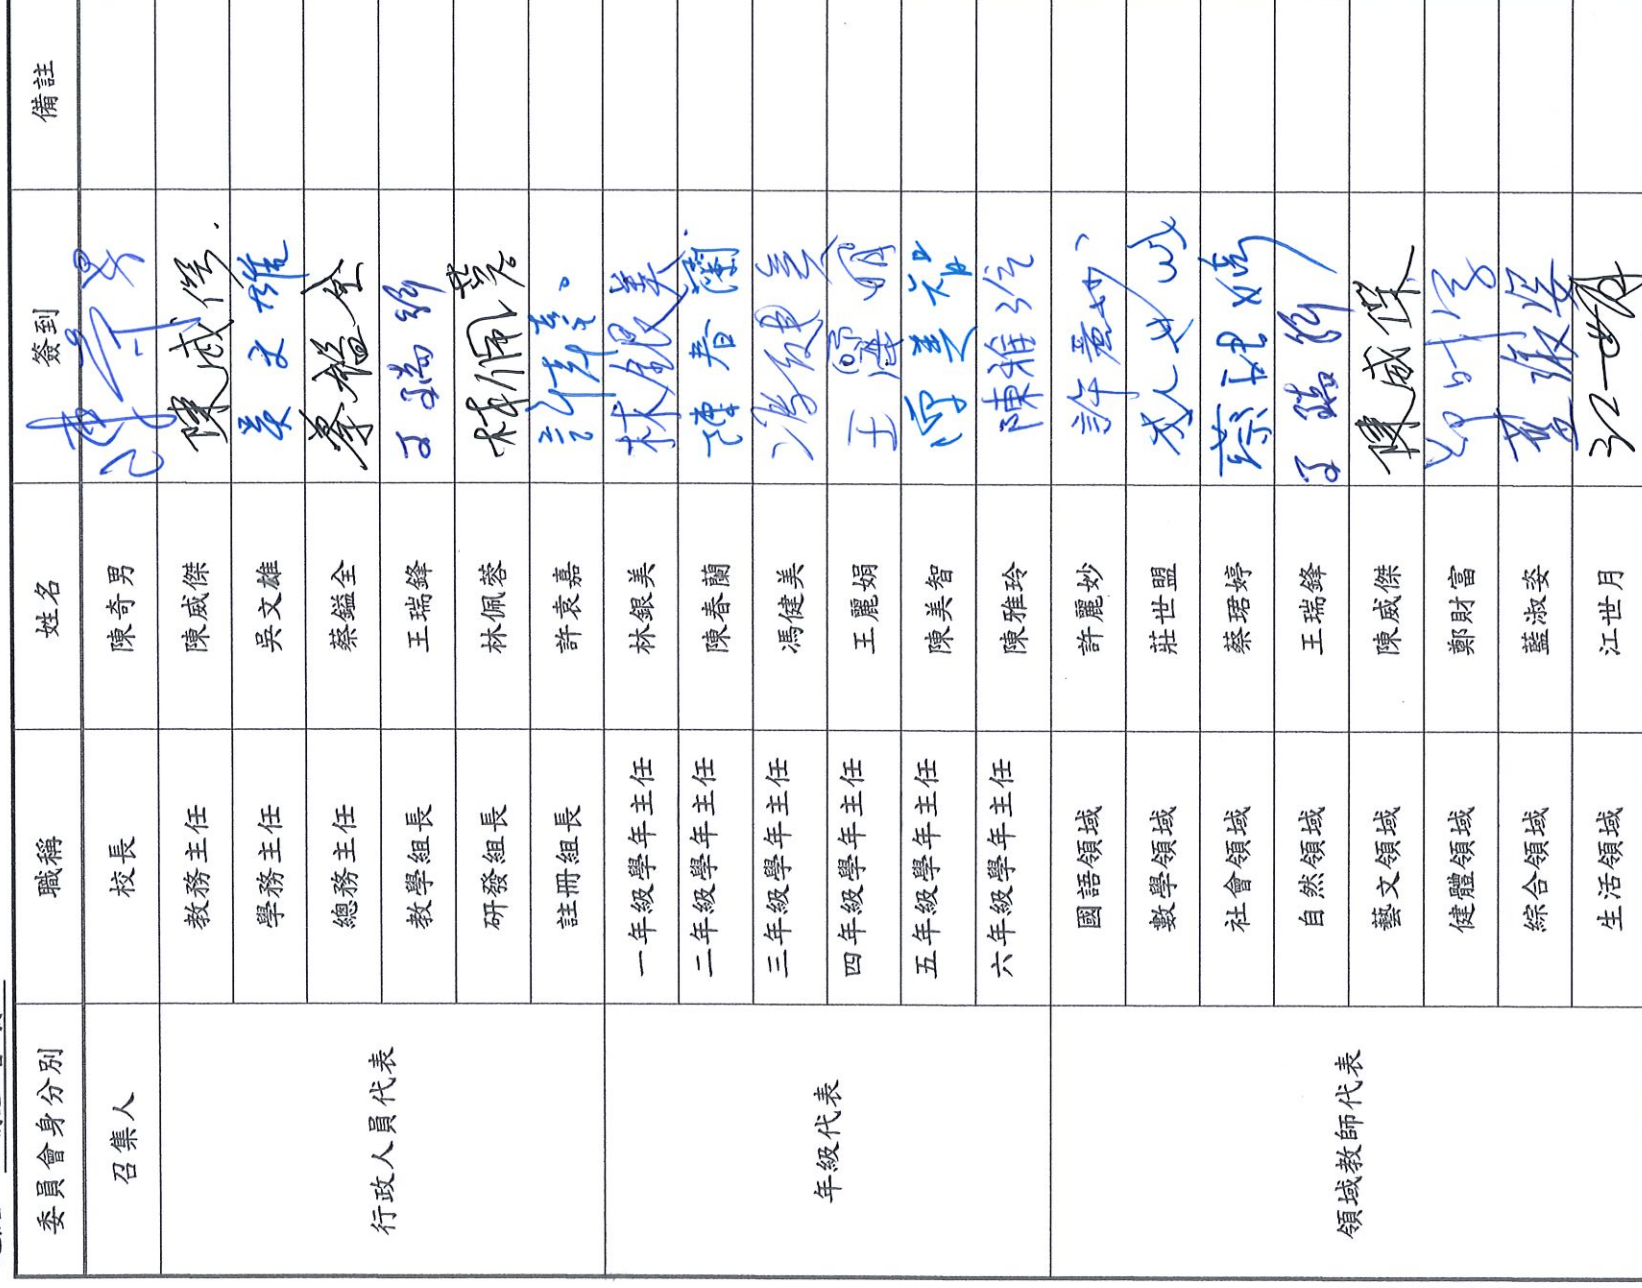 委員會身分別 職稱 姓名 簽到 備註
召集人 校長 陳奇男
行政人員代表 教務主任 陳威傑 陳威傑
學務主任 吳文雄 吳文雄
總務主任 蔡鎰全 蔡鎰全
教學組長 王瑞鋒 王瑞鋒
研發組長 林佩蓉 林佩蓉
註冊組長 許袁嘉
年級代表 一年級學年主任 林銀美 林銀美
二年級學年主任 陳春蘭 陳春蘭
三年級學年主任 馮健美 馮健美
四年級學年主任 王麗娟 王麗娟
五年級學年主任 陳美智 陳美智
六年級學年主任 陳雅玲 陳雅玲
領域教師代表 國語領域 許麗妙 許麗妙
數學領域 莊世盟
社會領域 蔡珺婷 蔡珺婷
自然領域 王瑞鋒 王瑞鋒
藝文領域 陳威傑 陳威傑
健體領域 鄭財富
綜合領域 藍淑姿 藍淑姿
生活領域 江世月 江世月